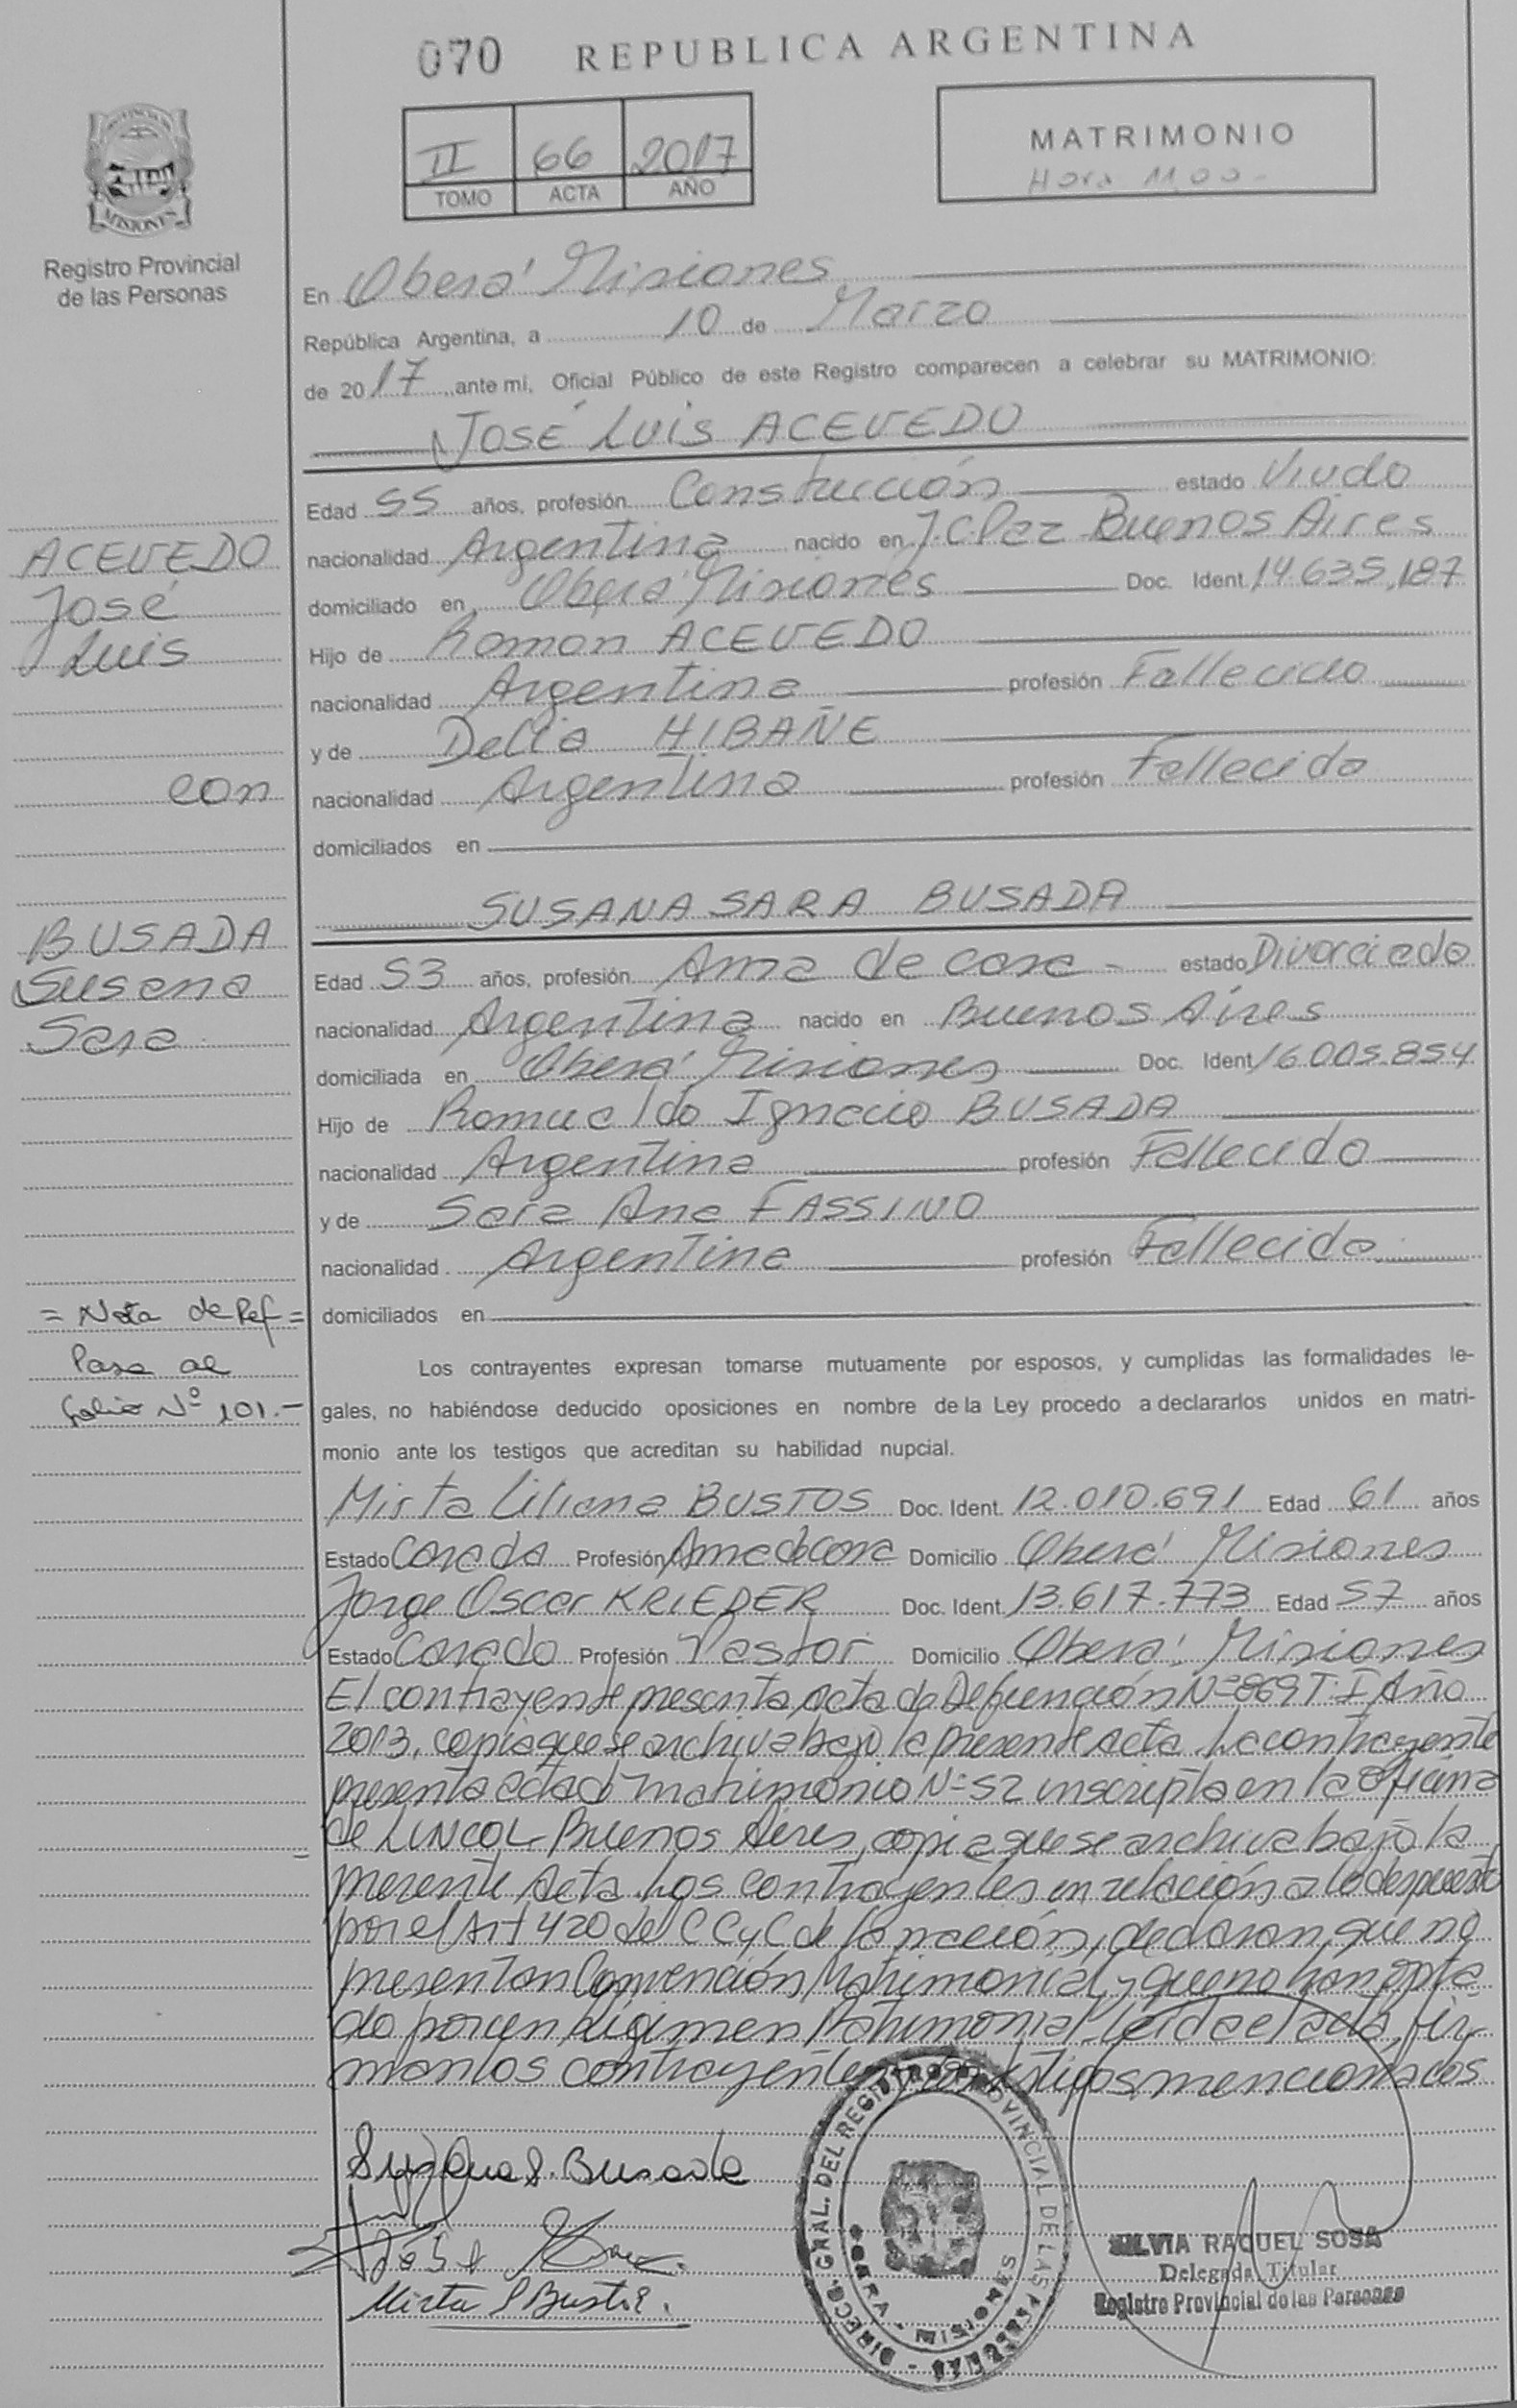 070 REPUBLICA ARGENTINA
II 66 2017
TOMO ACTA AÑO
MATRIMONIO
Hora 11,00-
MISIONES
Registro Provincial
de las Personas
En Oberá Misiones
República Argentina, a 10 de Marzo
de 2017 ante mi, Oficial Público de este Registro comparecen a celebrar su MATRIMONIO:
JOSÉ LUIS ACEVEDO
Edad 55 años, profesión Constucción estado Viudo
nacionalidad Argentina nacido en J.C.Paz Buenos Aires
domiciliado en Oberá Misiones Doc. Ident 14.635.187
Hijo de Roman ACEVEDO
nacionalidad Argentina profesión Fallecido
y de Delia HIBAÑE
nacionalidad Argentina profesión Fallecida
domiciliados en
ACEVEDO
José
Luis
con
BUSADA
Susana
Sara
SUSANA SARA BUSADA
Edad 53 años, profesión Ama de casa - estado Divorciada
nacionalidad Argentina nacido en Buenos Aires
domiciliada en Oberá Misiones Doc. Ident 16.005.854
Hijo de Romualdo Ignacio BUSADA
nacionalidad Argentina profesión Fallecido
y de Sara Ana FASSINO
nacionalidad Argentina profesión Fallecida
domiciliados en
= Nota de Ref =
Pasa al
folio Nº 101.-
Los contrayentes expresan tomarse mutuamente por esposos, y cumplidas las formalidades le-
gales, no habiéndose deducido oposiciones en nombre de la Ley procedo a declararlos unidos en matri-
monio ante los testigos que acreditan su habilidad nupcial.
Mirta Liliana BUSTOS Doc. Ident. 12.010.691 Edad 61 años
Estado Casada Profesión Ama de casa Domicilio Oberá Misiones
Jorge Oscar KRIEDER Doc. Ident. 13.617.773 Edad 57 años
Estado Casado Profesión Pastor Domicilio Oberá Misiones
El contrayente presenta Acta de Defunción Nº 869 T. I Año
2013, copia que se archiva bajo la presente Acta. La contrayente
presenta matrimonio Nº 52 inscripta en la Oficina
de LINCOL- Buenos Aires, copia que se archiva bajo la
presente Acta. Los contrayentes en relación a lo
por el Art 420 del CCyC de la nación, declaran, que no
presentan Convención Matrimonial y que no han opta
do por un Régimen Patrimonial. Leida el acta, fir-
man los contrayentes y los testigos mencionados
Susana S. Busada
José
Mirta L Bustos.
DIRECC. GRAL. DEL REGISTRO PROVINCIAL DE LAS PERSONAS
OBERA - MISIONES
SILVIA RAQUEL SOSA
Delegada Titular
Registro Provincial de las Personas